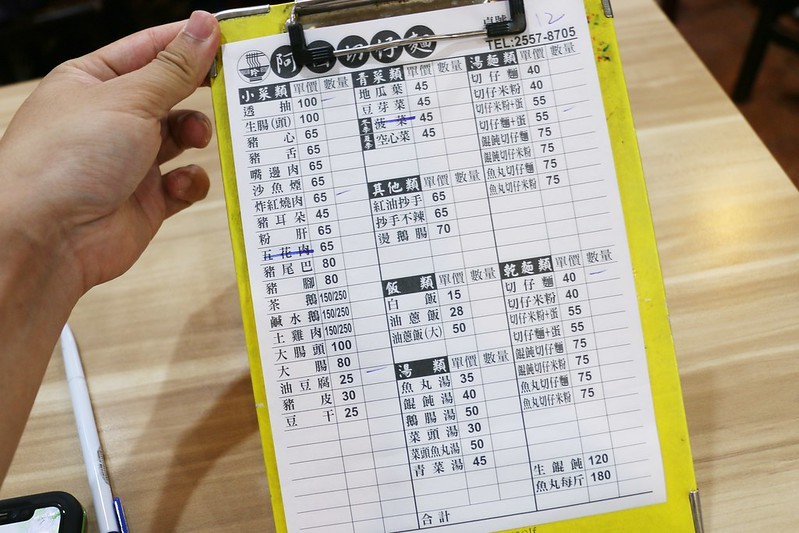 桌號 12
阿 切仔麵
TEL:2557-8705
小菜類 單價 數量
透抽 100
生腸(頭) 100
豬心 65
豬舌 65
嘴邊肉 65
沙魚煙 65
炸紅燒肉 65
豬耳朵 45
粉肝 65
五花肉 65
豬尾巴 80
豬腳 80
茶鵝 150/250
鹹水鵝 150/250
土雞肉 150/250
大腸頭 100
大腸 80
油豆腐 25
豬皮 30
豆干 25
青菜類 單價 數量
地瓜葉 45
豆芽菜 45
冬季 菠菜 45
夏季 空心菜 45
其他類 單價 數量
紅油抄手 65
抄手不辣 65
燙鵝腸 70
飯類 單價 數量
白飯 15
油蔥飯 28
油蔥飯(大) 50
湯類 單價 數量
魚丸湯 35
餛飩湯 40
鵝腸湯 50
菜頭湯 30
菜頭魚丸湯 50
青菜湯 45
合計
湯麵類 單價 數量
切仔麵 40
切仔米粉 40
切仔米粉+蛋 55
切仔麵+蛋 55
餛飩切仔麵 75
餛飩切仔米粉 75
魚丸切仔麵 75
魚丸切仔米粉 75
乾麵類 單價 數量
切仔麵 40
切仔米粉 40
切仔米粉+蛋 55
切仔麵+蛋 55
餛飩切仔麵 75
餛飩切仔米粉 75
魚丸切仔麵 75
魚丸切仔米粉 75
生餛飩 120
魚丸每斤 180